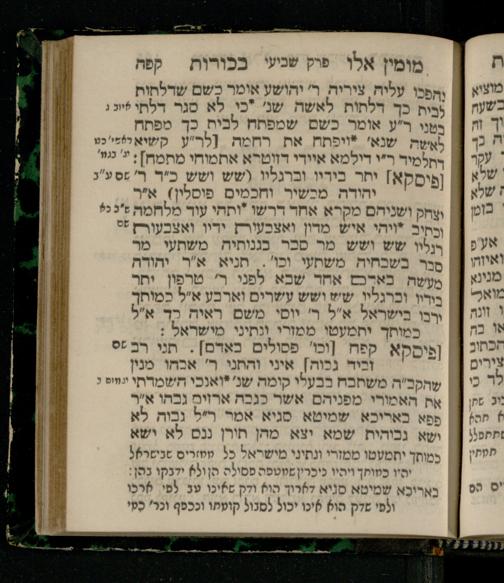 מומין אלו פרק שביעי בכורות קפה
נהפכו עליה ציריה ר' יהושע אומר כשם שדלתות
לבית כך דלתות לאשה שנ' *כי לא סגר דלתי איוב ג
בטני ר"ע אומר כשם שמפתח לבית כך מפתח
לאשה שנא' *ויפתח את רחמה [לר"ע קשיא
דתלמיד ר"י דילמא איידי דזוטרא אתמוחי מתמח]:
[פיסקא] יתר בידיו וברגליו (שש ושש כ"ד ר' שם ע"ב
יהודה מכשיר וחכמים פוסלין) א"ר
יצחק ושניהם מקרא אחד דרשו *ותהי עוד מלחמה ש"ב כא
וכתיב *ויהי איש מדון ואצבעות ידיו ואצבעות שם
רגליו שש ושש מר סבר בגנותיה משתעי מר
סבר בשבחיה משתעי וכו'. תניא א"ר יהודה
מעשה באדם אחד שבא לפני ר' טרפון יתר
בידיו וברגליו שש ושש עשרים וארבע א"ל כמותך
ירבו בישראל א"ל ר' יוסי משם ראיה כך א"ל
כמותך יתמעטו ממזרי ונתיני מישראל :
[פיסקא קפח [וכו' פסולים באדם]. תני רב שם
זביד גבוה] איני והתני ר' אבהו מנין
שהקב"ה משתבח בבעלי קומה שנ' *ואנכי השמדתי
את האמורי מפניהם אשר כגבה ארזים גבהו א"ר
פפא באריכא שמיטא סניא אמר ר"ל גבוה לא
ישא גבוהית שמא יצא מהן תורן ננם לא ישא
כמותך יתמעטו ממזרי ונתיני מישראל כל ממזרים שבישראל
יהיו כמותך ויהיו ניכרין לא ידבקו בהן:
באריכא שמיטא סניא דארוך הוא ודק שאינו עב לפי ארכו
ולפי שדק הוא אינו יכול לסבול קומתו ונכפף